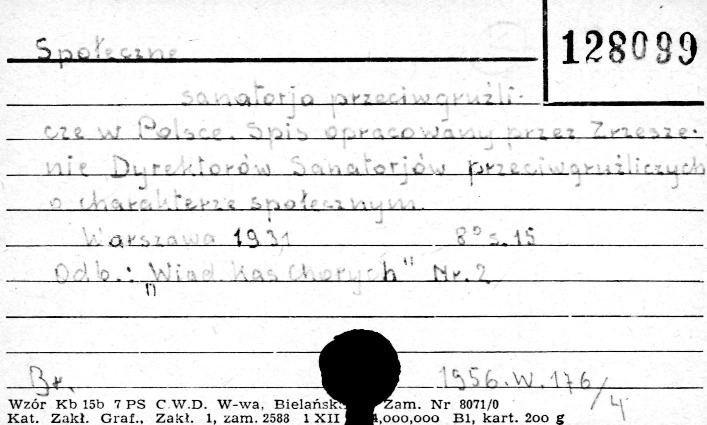 Społeczne
128099
sanatorja przeciwgruźli-
cze w Polsce. Spis opracowany przez Zrzesze-
nie Dyrektorów Sanatorjów przeciwgruźliczych
o charakterze społecznym.
Warszawa 1931 8° s. 15
Odb.: "Wiad. Kas Chorych" Nr. 2
Br. 1956.W.176/4
Wzór Kb 15b 7 PS C.W.D. W-wa, Zam. Nr 8071/0
Kat. Zakł. Graf., Zakł. 1, zam. 2588 1 XII 4,000,000 B1, kart. 200 g